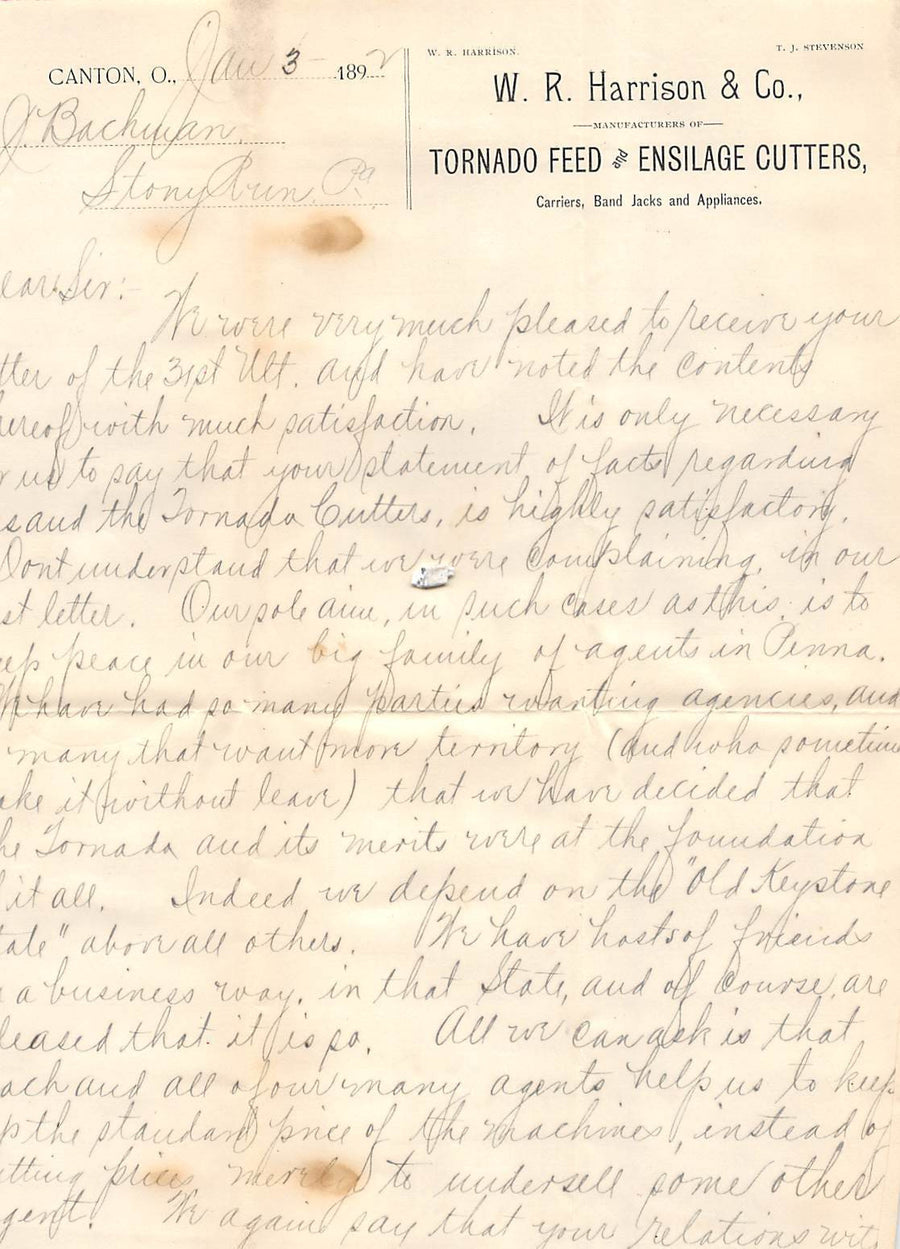 W. R. HARRISON. T. J. STEVENSON
CANTON, O., Jan 3 1892
W. R. Harrison & Co.,
MANUFACTURERS OF
TORNADO FEED and ENSILAGE CUTTERS,
Carriers, Band Jacks and Appliances.
J. Bachman.
Stony Run. Pa
ear Sir:-
We were very much pleased to receive your
tter of the 31st Ult. and have noted the contents
hereof with much satisfaction. It is only necessary
r us to say that your statement of facts regarding
s and the Tornado Cutters, is highly satisfactory.
Dont understand that we were complaining, in our
st letter. Our sole aim, in such cases as this, is to
eep peace in our big family of agents in Penna.
We have had so many parties wanting agencies, and
many that want more territory (and who sometim
ake it without leave) that we have decided that
he Tornado and its merits were at the foundation
f it all. Indeed we depend on the "Old Keystone
tate" above all others. We have hosts of friends
n a business way, in that State, and of course, are
leased that it is so. All we can ask is that
ach and all of our many agents help us to keep
p the standard price of the machines, instead of
utting prices merely to undersell some other
gent. We again say that your relations wit